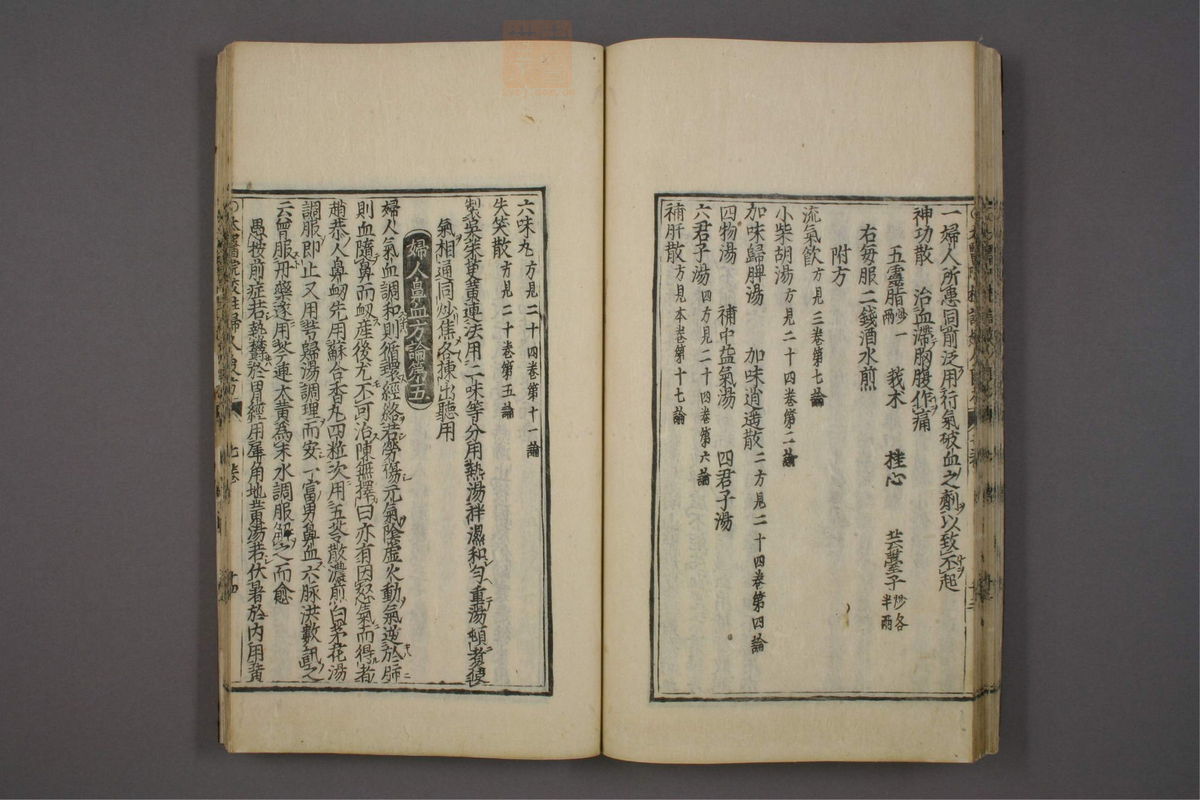 一婦人所患同前泛用行氣破血之劑以致不起
神功散　治血滯胸腹作痛
五靈脂炒一兩　莪术　桂心　芸薹子炒各半兩
右每服二錢酒水煎
附方
流氣飲方見三卷第七論
小柴胡湯方見二十四卷第二論
加味歸脾湯　加味逍遙散二方見二十四卷第四論
四物湯　補中益氣湯　四君子湯
六君子湯四方見二十四卷第六論
補肝散方見本卷第十七論
六味丸方見二十四卷第十一論
失笑散方見二十卷第五論
製吳茱萸黃連法用二味等分用熱湯拌濕和勻重湯頓者提
氣相通同炒焦各揀出聽用
婦人鼻血方論第五
婦人氣血調和則循環經絡若勞傷元氣陰虛火動氣逆於肺
則血隨鼻而衂產後尤不可治陳無擇曰亦有因怒氣而得者
趙恭人鼻衂先用蘇合香丸四粒次用五苓散濃煎白茅花湯
調服即止又用芎歸湯調理而安一富男鼻血六脉洪數訊之
云曾服丹藥遂用芩連大黃爲末水調服解之而愈
愚按前症若熱鬱於胃經用犀角地黃湯若伏暑於內用黃
太醫院校註婦人良方　七卷　十四